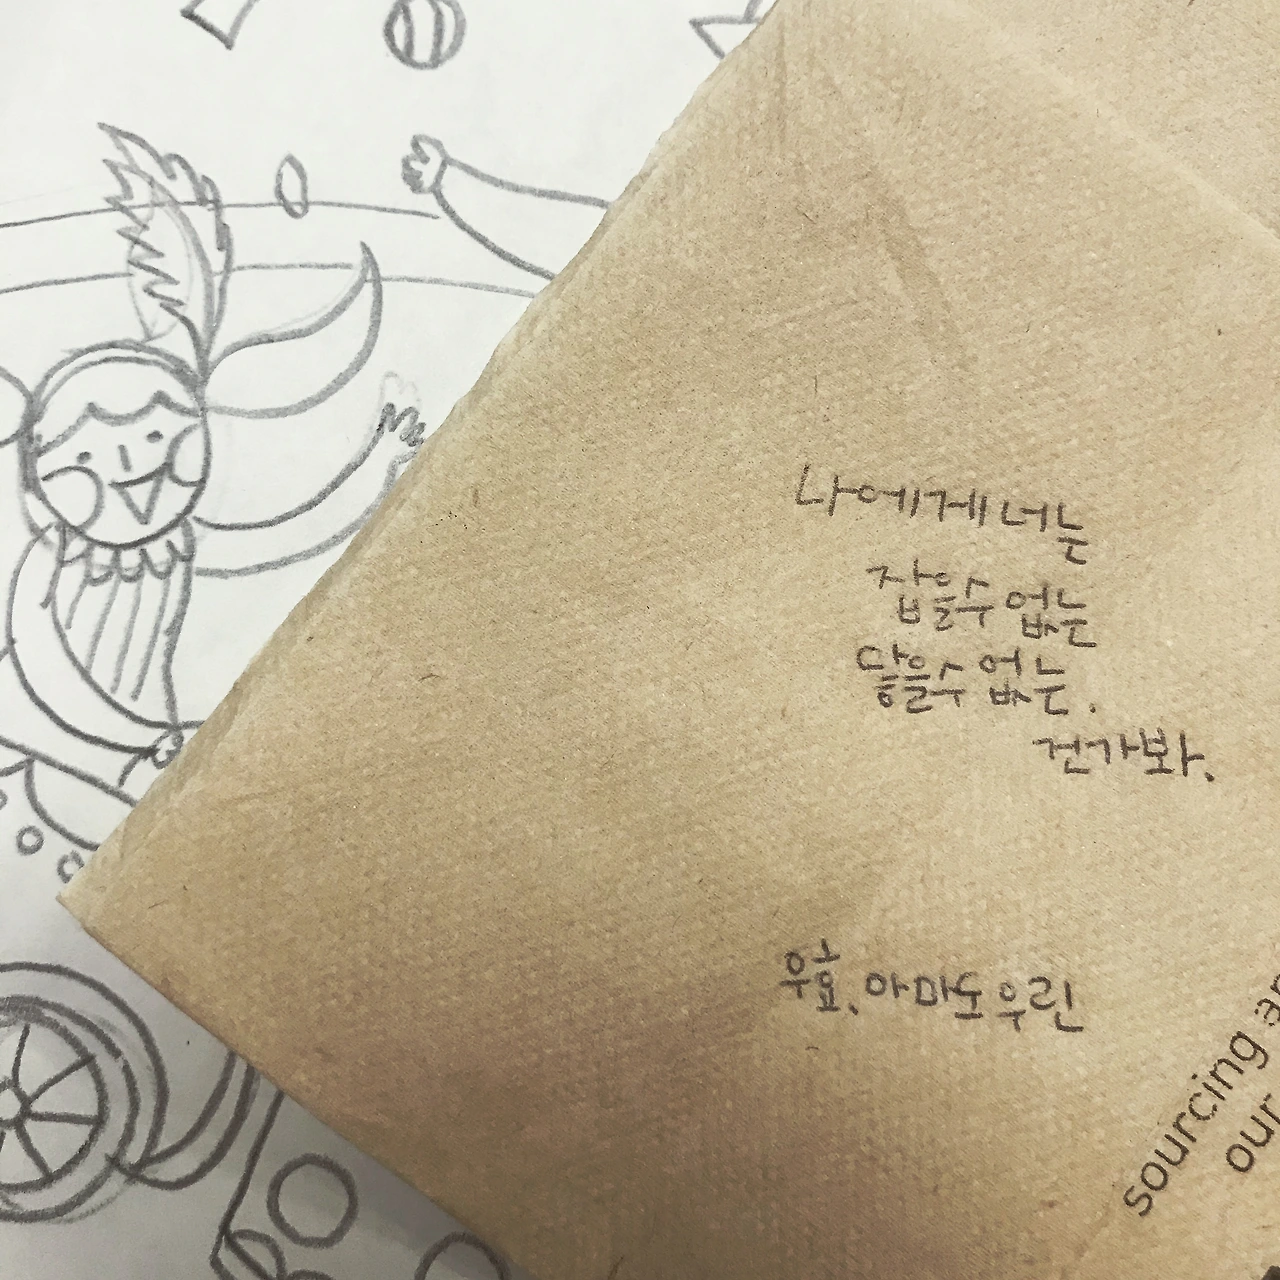 나에게 너는
잡을수 없는
닿을수 없는.
건가봐.
우효. 아마도 우린
sourcing an
our